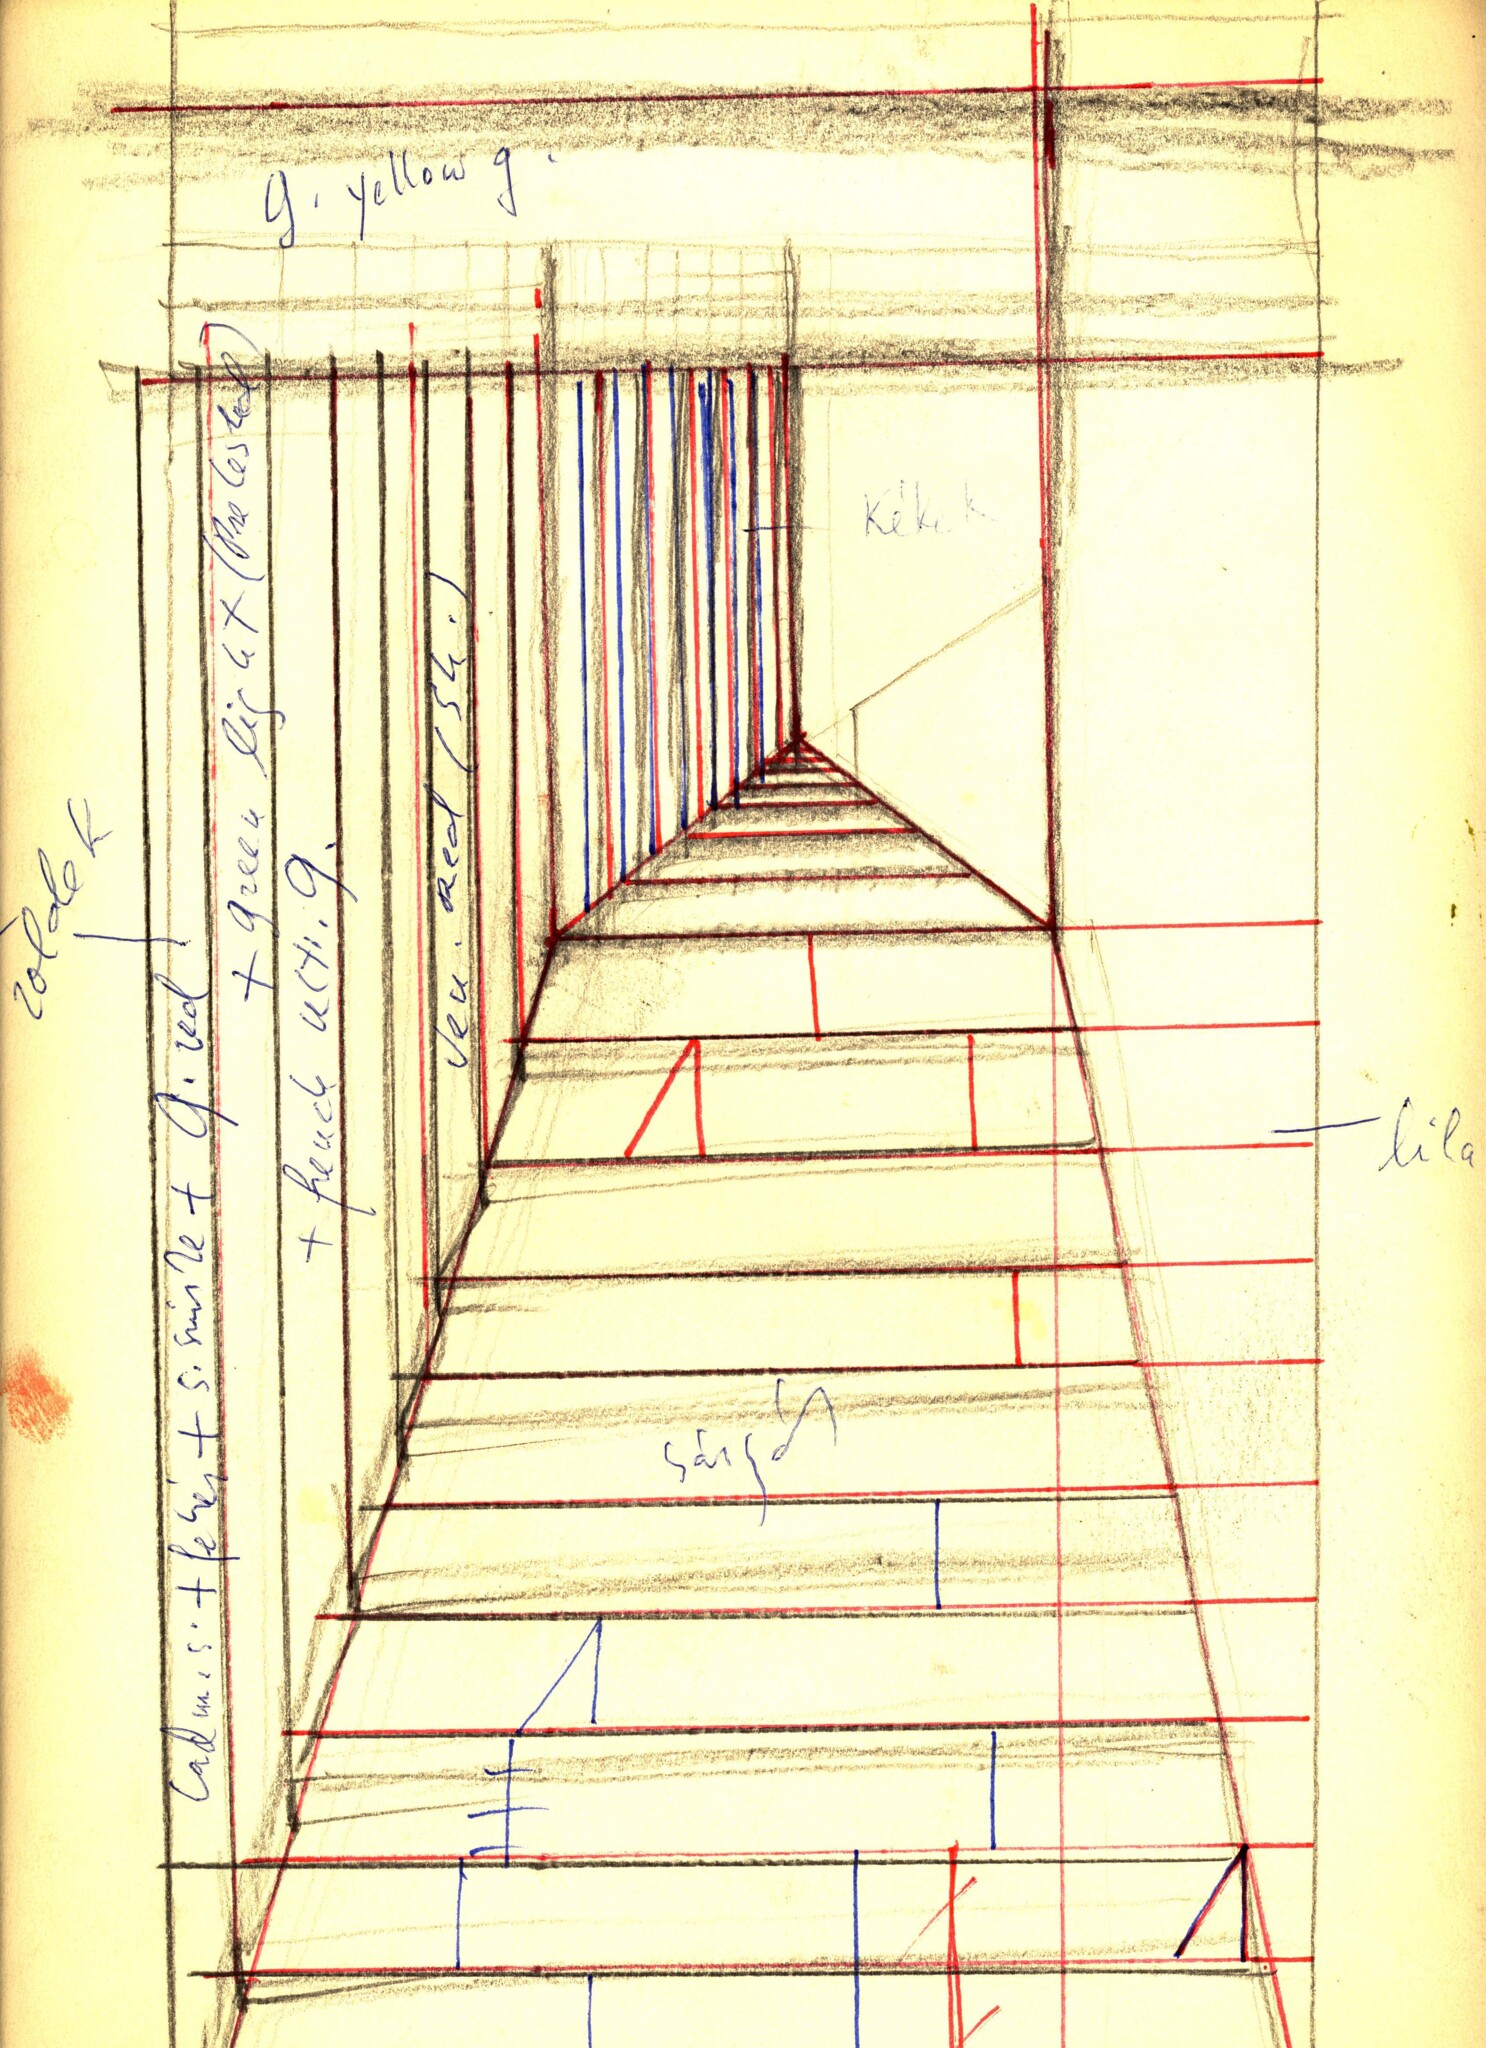 g. yellow g.
Kékek
zöldek
Cadm. s. + fehér + s. sinite + g. red
+ green light (Pre lested)
+ french ulti. g.
Ven. red (sh.)
lila
sárga